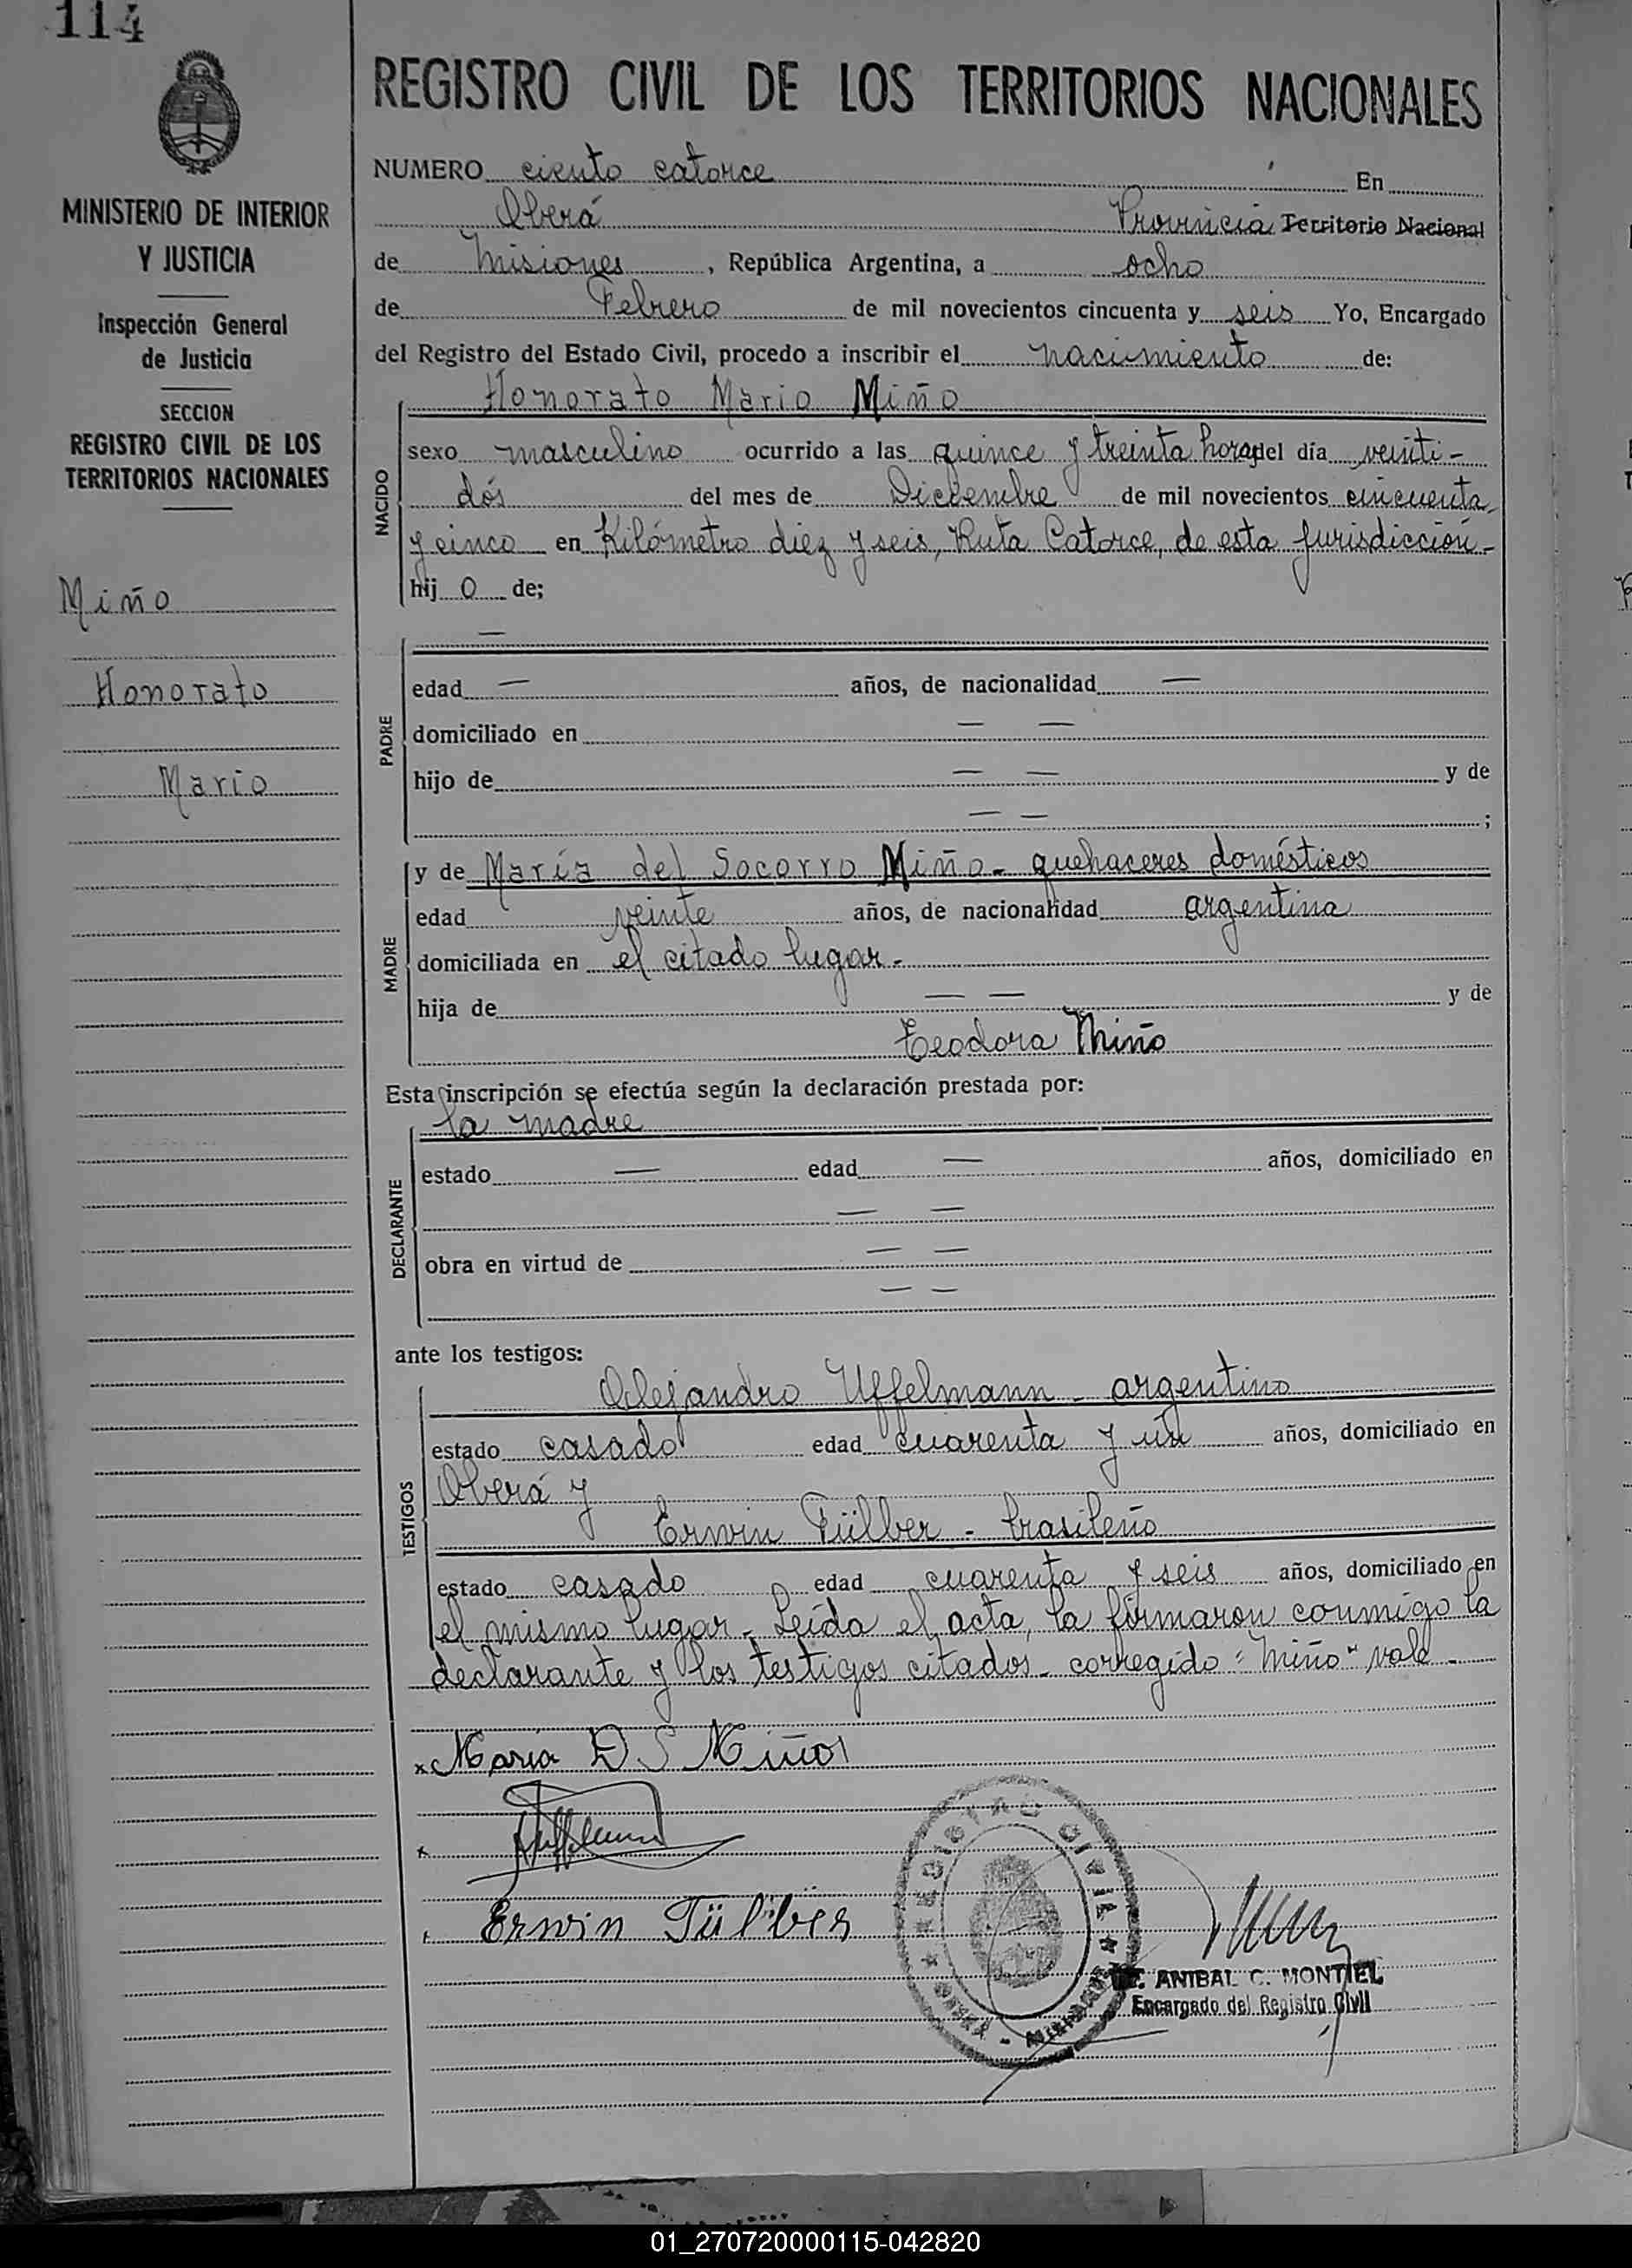 114
REGISTRO CIVIL DE LOS TERRITORIOS NACIONALES
MINISTERIO DE INTERIOR
Y JUSTICIA
Inspección General
de Justicia
SECCION
REGISTRO CIVIL DE LOS
TERRITORIOS NACIONALES
Miño
Honorato
Mario
NUMERO ciento catorce En
Oberá Provincia Territorio Nacional
de Misiones, República Argentina, a ocho
de Febrero de mil novecientos cincuenta y seis Yo, Encargado
del Registro del Estado Civil, procedo a inscribir el nacimiento de:
Honorato Mario Miño
NACIDO
sexo masculino ocurrido a las quince y treinta horas del día veinti-
dós del mes de Diciembre de mil novecientos cincuenta
y cinco en Kilómetro diez y seis, Ruta Catorce, de esta jurisdicción-
hij o de;
PADRE
—
edad — años, de nacionalidad —
domiciliado en — —
hijo de — — y de
— — ;
MADRE
y de María del Socorro Miño - quehaceres domésticos
edad veinte años, de nacionalidad argentina
domiciliada en el citado lugar -
hija de — — y de
Teodora Miño
Esta inscripción se efectúa según la declaración prestada por:
la madre
DECLARANTE
estado — edad — años, domiciliado en
— —
obra en virtud de — —
— —
ante los testigos:
TESTIGOS
Alejandro Uffelmann - argentino
estado casado edad cuarenta y un años, domiciliado en
Oberá y
Erwin Tülber - brasileño
estado casado edad cuarenta y seis años, domiciliado en
el mismo lugar - Leída el acta, la firmaron conmigo la
declarante y los testigos citados - corregido "Miño" vale -
x María D S Miño
x
Erwin Tülber
REGISTRO CIVIL
OBERA - MISIONES
ANIBAL C. MONTIEL
Encargado del Registro Civil
01_270720000115-042820